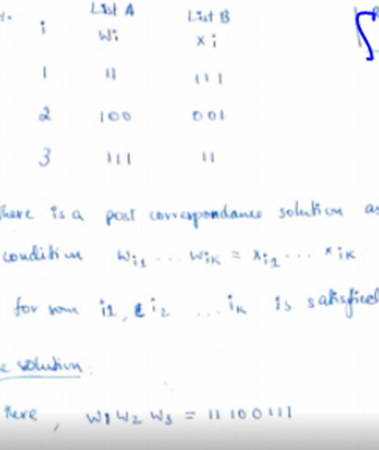 i List A List B
Wi xi
1 11 111
2 100 001
3 111 11
here is a post correspondance solution as
condition Wi1 ... Wik = xi1 ... xik
for som i1, i2 ... ik is satisfied
solution:
Here, W1 W2 W3 = 11100111